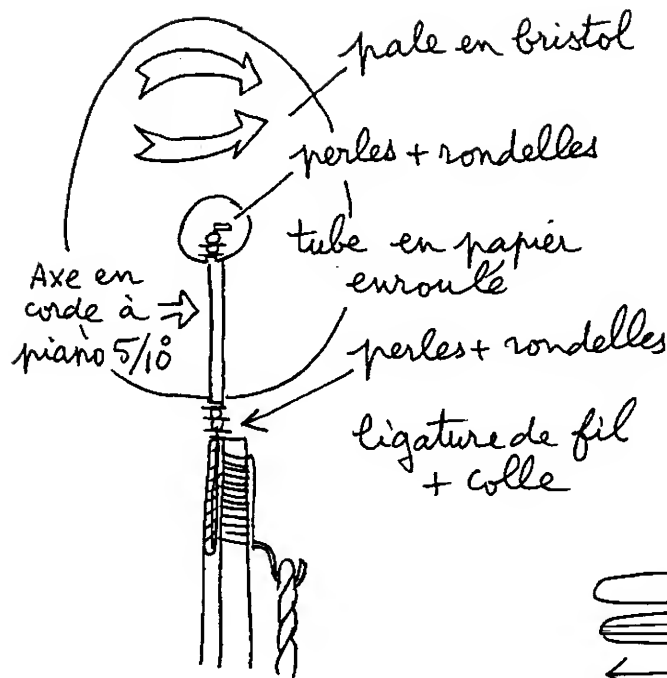 pale en bristol
perles + rondelles
tube en papier
enroulé
Axe en
corde à
piano 5/10°
perles + rondelles
ligature de fil
+ colle